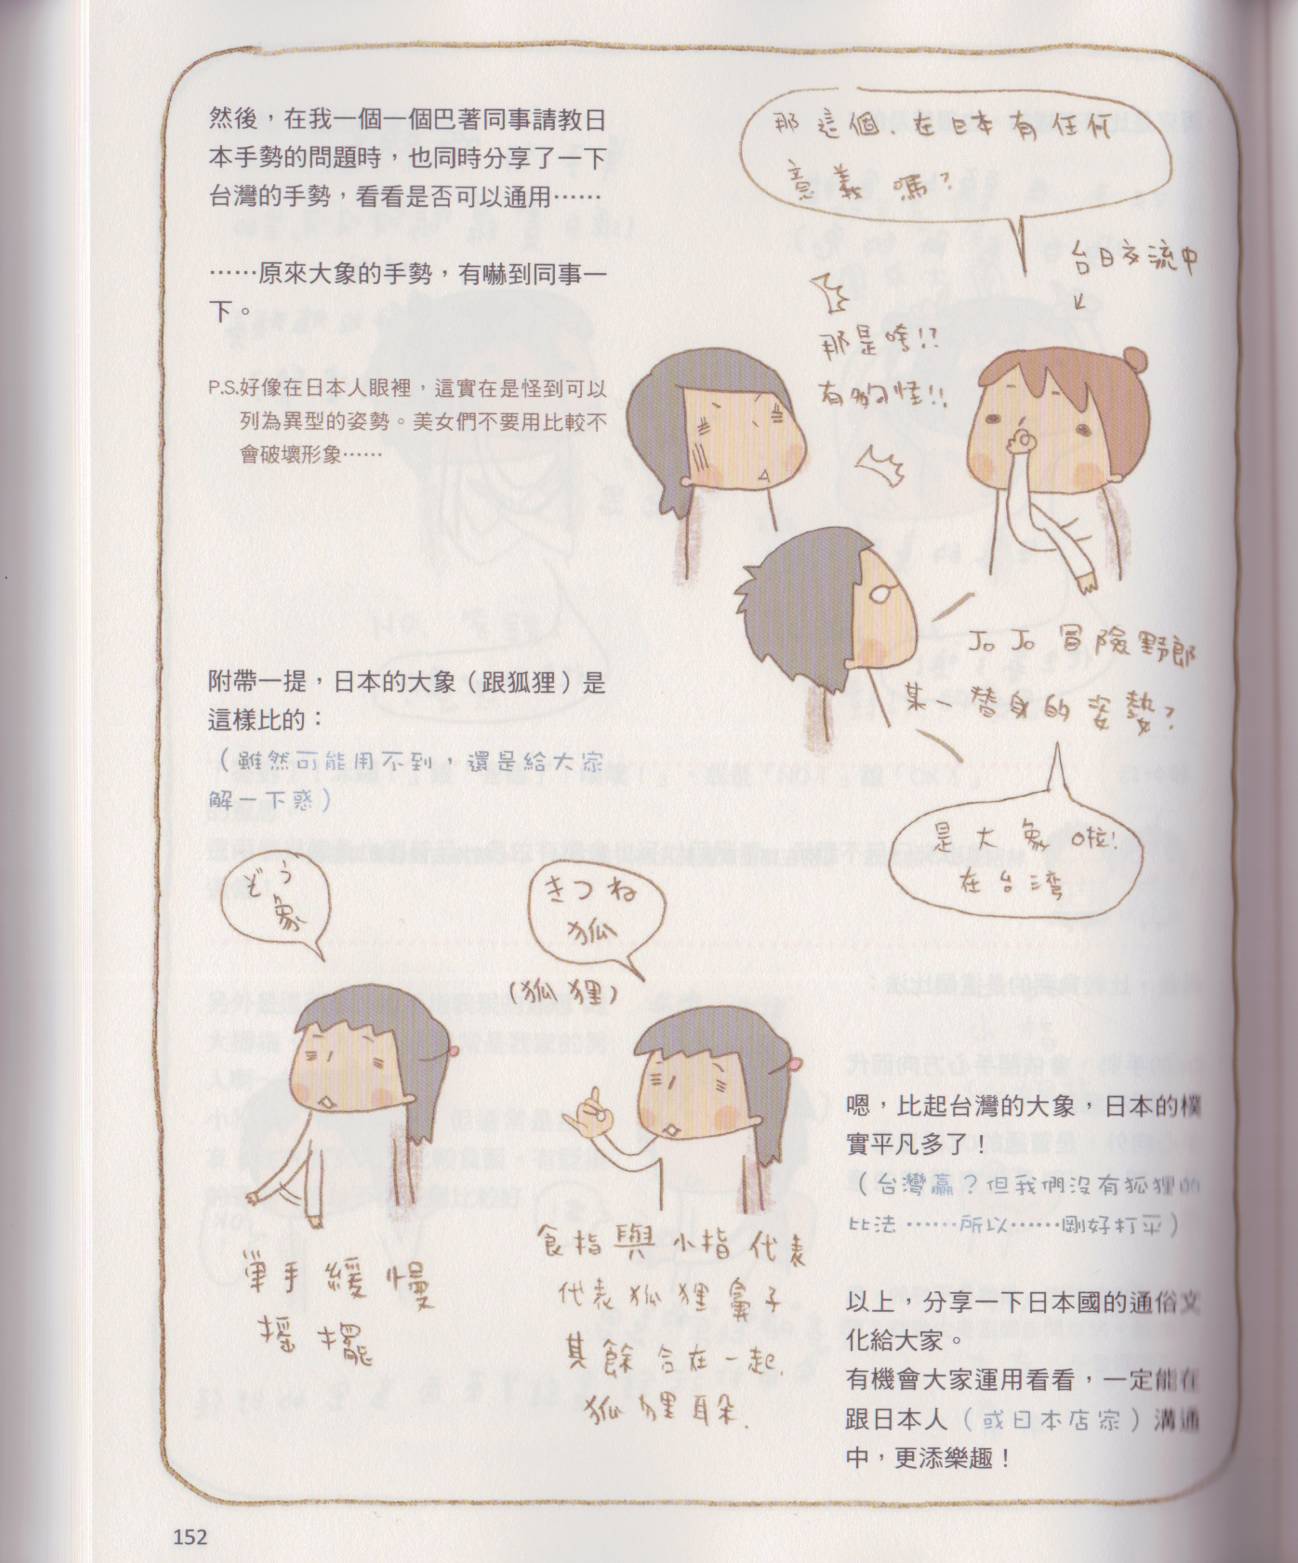 然後，在我一個一個巴著同事請教日
本手勢的問題時，也同時分享了一下
台灣的手勢，看看是否可以通用……
……原來大象的手勢，有嚇到同事一
下。
P.S.好像在日本人眼裡，這實在是怪到可以
列為異型的姿勢。美女們不要用比較不
會破壞形象……
那這個、在日本有任何
意義嗎？
台日交流中
那是啥!!
有夠怪!!
JoJo冒險野郎
某一替身的姿勢？
是大象啦!
在台湾
附帶一提，日本的大象（跟狐狸）是
這樣比的：
（雖然可能用不到，還是給大家
解一下惑）
ぞう
象
單手緩慢
搖擺
きつね
狐
(狐狸)
食指與小指代表
代表狐狸鼻子
其餘合在一起.
狐狸耳朵.
嗯，比起台灣的大象，日本的樸
實平凡多了！
（台灣贏？但我們沒有狐狸的
比法……所以……剛好打平）
以上，分享一下日本國的通俗文
化給大家。
有機會大家運用看看，一定能在
跟日本人（或日本店家）溝通
中，更添樂趣！
152